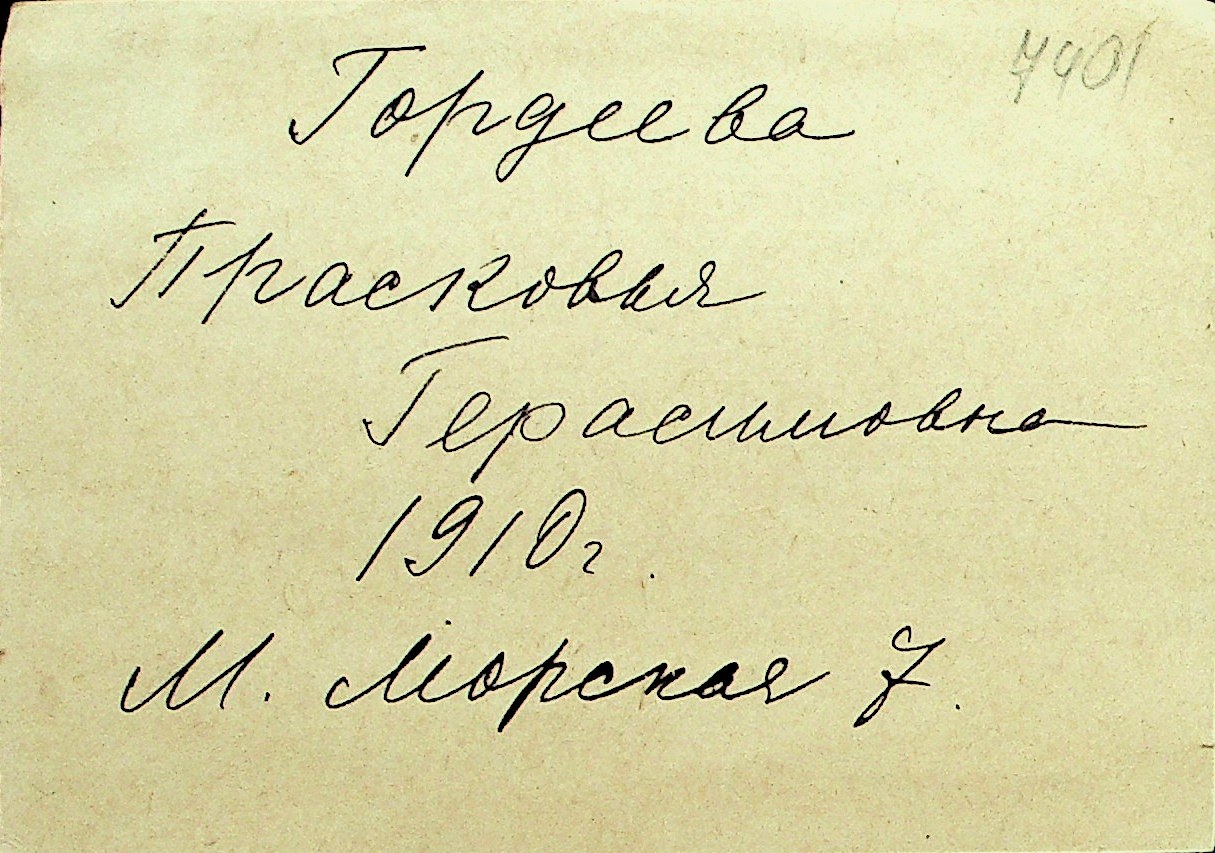 7901
Гордеева
Прасковья
Герасимовна
1910 г.
М. Морская 7.